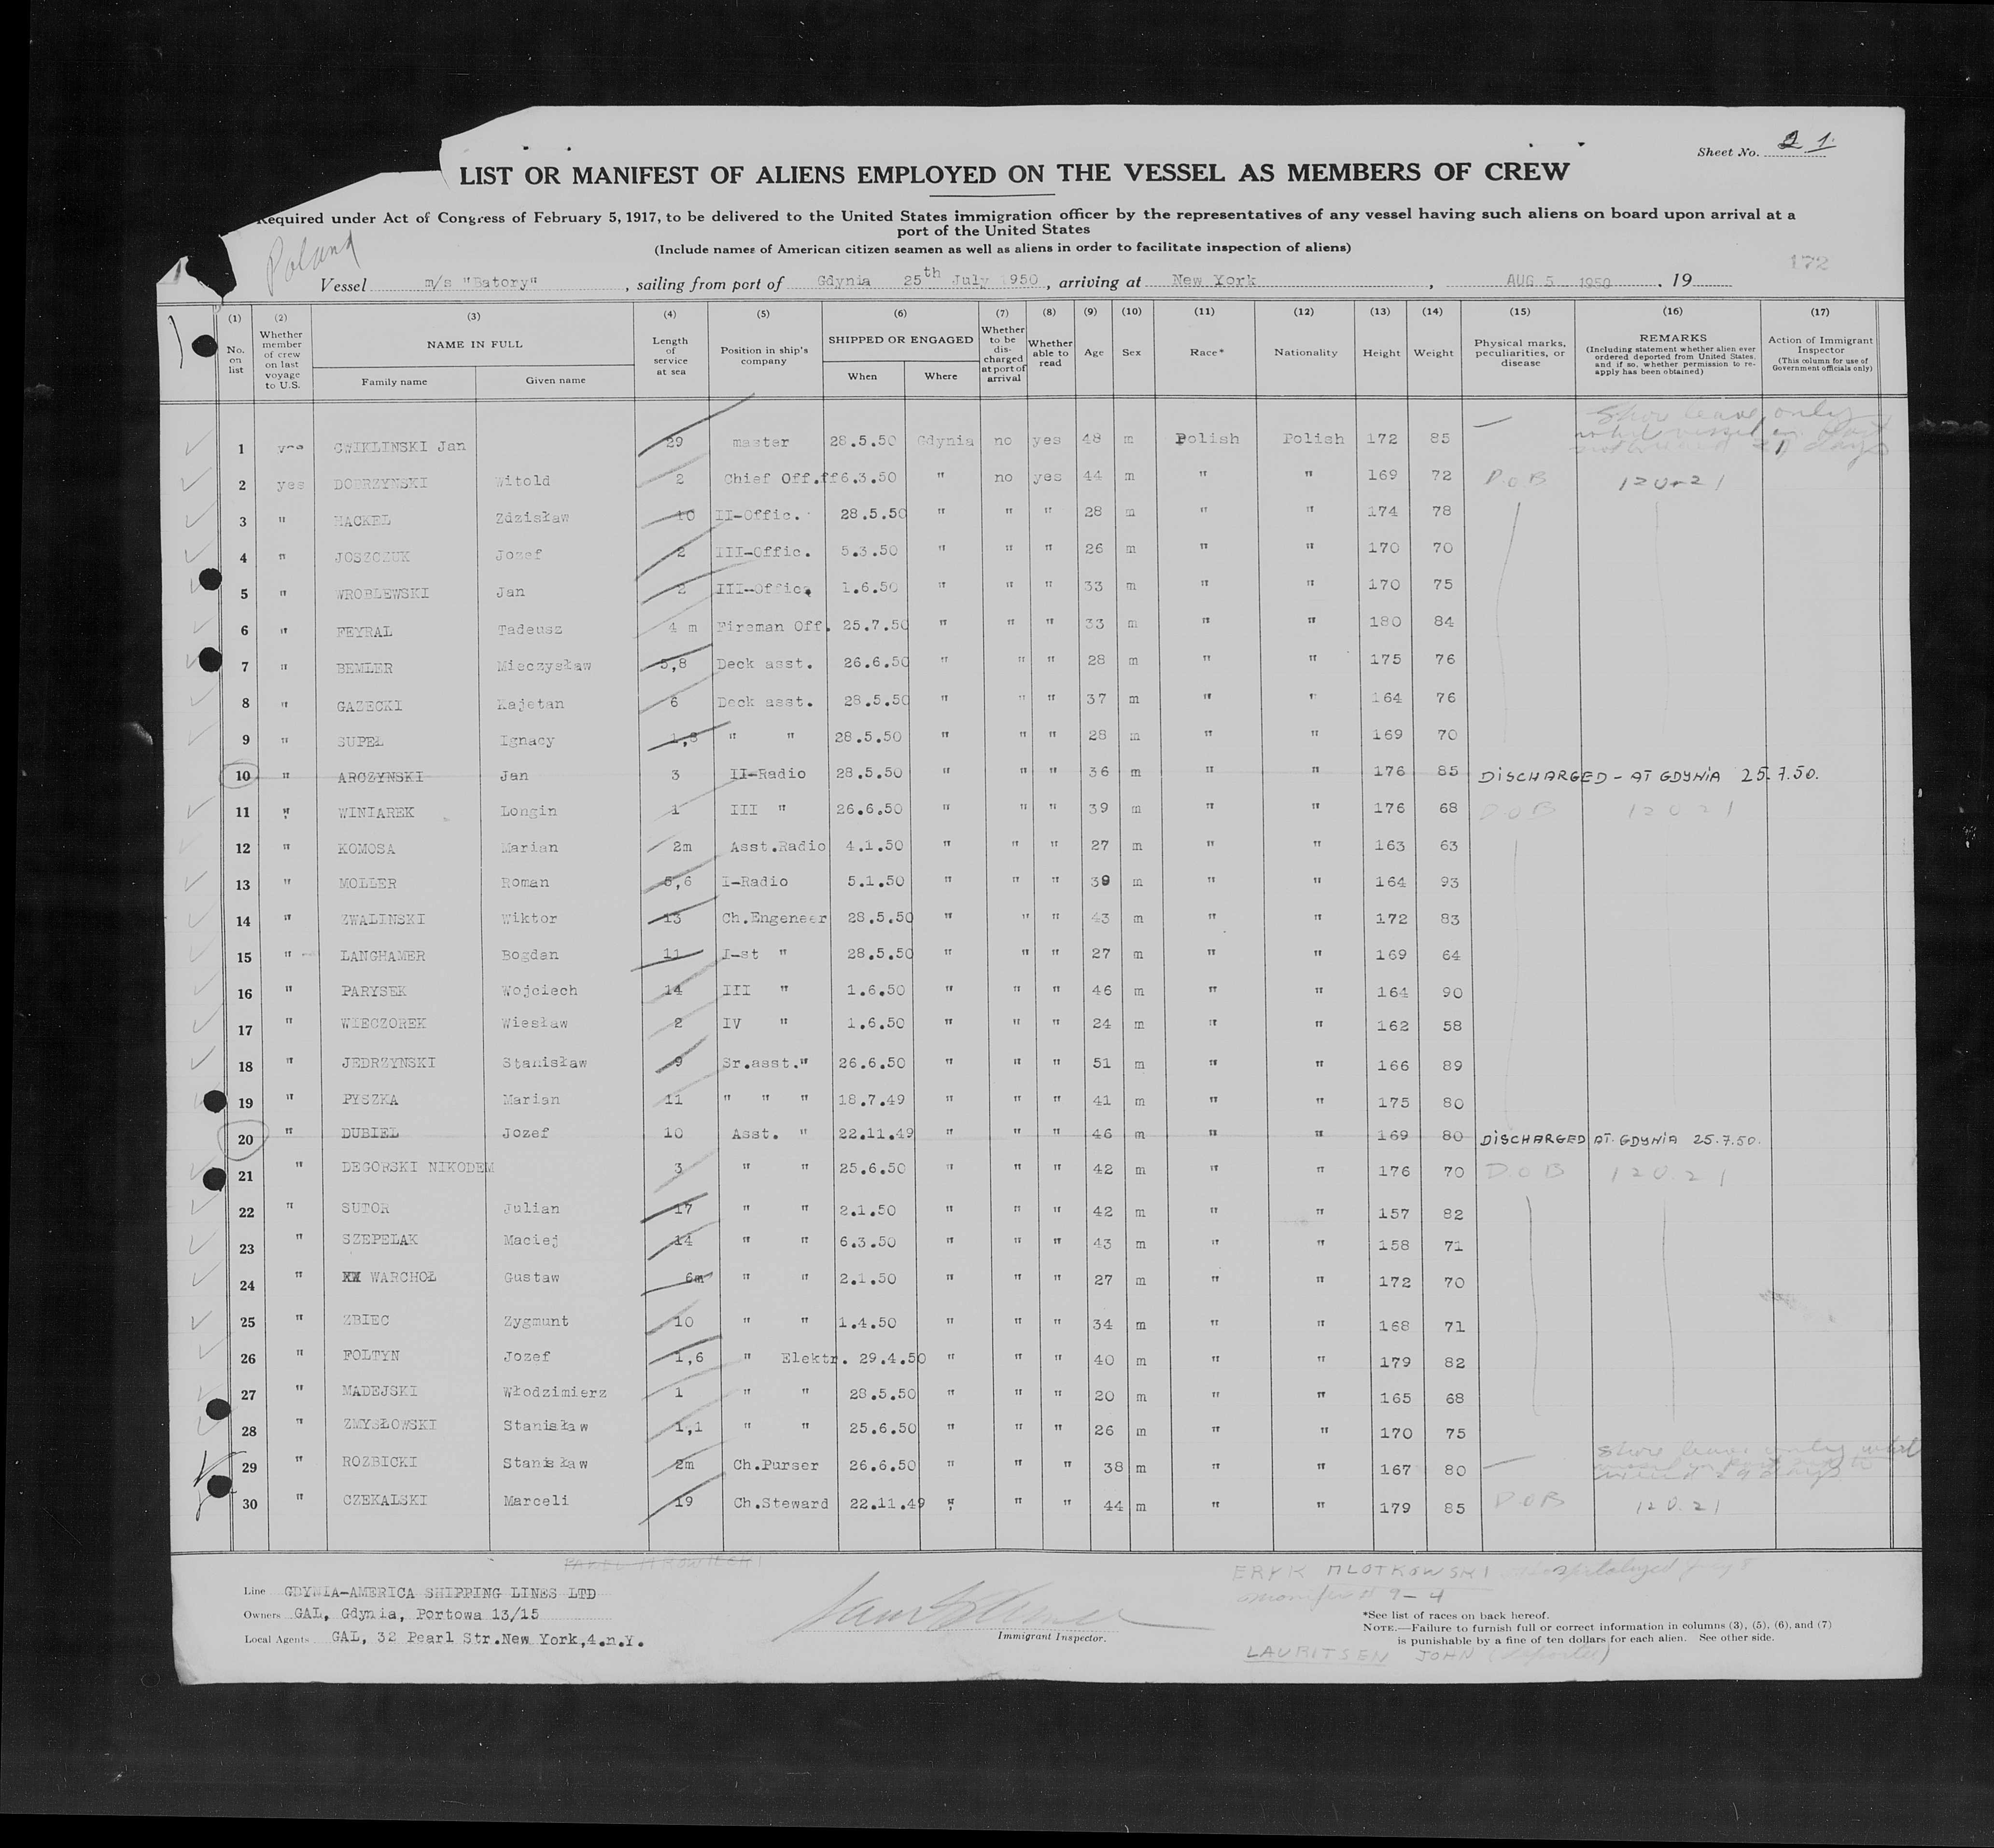 Sheet No. 1
LIST OR MANIFEST OF ALIENS EMPLOYED ON THE VESSEL AS MEMBERS OF CREW
Required under Act of Congress of February 5, 1917, to be delivered to the United States immigration officer by the representatives of any vessel having such aliens on board upon arrival at a
port of the United States
(Include names of American citizen seamen as well as aliens in order to facilitate inspection of aliens)
Poland
172
Vessel m/s "Batory" , sailing from port of Gdynia 25th July 1950 , arriving at New York , AUG 5 1950 . 19
(1) No. on list
(2) Whether member of crew on last voyage to U.S.
(3) NAME IN FULL Family name Given name
(4) Length of service at sea
(5) Position in ship's company
(6) SHIPPED OR ENGAGED When Where
(7) Whether to be discharged at port of arrival
(8) Whether able to read
(9) Age
(10) Sex
(11) Race*
(12) Nationality
(13) Height
(14) Weight
(15) Physical marks, peculiarities, or disease
(16) REMARKS (Including statement whether alien ever ordered deported from United States, and if so, whether permission to re-apply has been obtained)
(17) Action of Immigrant Inspector (This column for use of Government officials only)
Shore leave only
1 yes CWIKLINSKI Jan 29 master 28.5.50 Gdynia no yes 48 m Polish Polish 172 85 —
2 yes DOBRZYNSKI Witold 2 Chief Off.ff6.3.50 " no yes 44 m " " 169 72 D.O.B 120-21
3 " HACKEL Zdzisław 10 II-Offic. 28.5.50 " " " 28 m " " 174 78
4 " JOSZCZUK Jozef 2 III-Offic. 5.3.50 " " " 26 m " " 170 70
5 " WROBLEWSKI Jan 2 III-Offic. 1.6.50 " " " 33 m " " 170 75
6 " FEYRAL Tadeusz 4 m Fireman Off. 25.7.50 " " " 33 m " " 180 84
7 " BEMLER Mieczysław 5,8 Deck asst. 26.6.50 " " " 28 m " " 175 76
8 " GAZECKI Kajetan 6 Deck asst. 28.5.50 " " " 37 m " " 164 76
9 " SUPEŁ Ignacy 1,8 " " 28.5.50 " " " 28 m " " 169 70
10 " ARCZYNSKI Jan 3 II-Radio 28.5.50 " " " 36 m " " 176 85 DISCHARGED - AT GDYNIA 25.7.50.
11 " WINIAREK Longin 1 III " 26.6.50 " " " 39 m " " 176 68 D.O.B 120 21
12 " KOMOSA Marian 2m Asst.Radio 4.1.50 " " " 27 m " " 163 63
13 " MOLLER Roman 5,6 I-Radio 5.1.50 " " " 39 m " " 164 93
14 " ZWALINSKI Wiktor 13 Ch.Engeneer 28.5.50 " " " 43 m " " 172 83
15 " LANGHAMER Bogdan 11 I-st " 28.5.50 " " " 27 m " " 169 64
16 " PARYSEK Wojciech 14 III " 1.6.50 " " " 46 m " " 164 90
17 " WIECZOREK Wiesław 2 IV " 1.6.50 " " " 24 m " " 162 58
18 " JEDRZYNSKI Stanisław 9 Sr.asst." 26.6.50 " " " 51 m " " 166 89
19 " PYSZKA Marian 11 " " " 18.7.49 " " " 41 m " " 175 80
20 " DUBIEL Jozef 10 Asst. " 22.11.49 " " " 46 m " " 169 80 DISCHARGED AT GDYNIA 25.7.50.
21 " DEGORSKI NIKODEM 3 " " 25.6.50 " " " 42 m " " 176 70 D.O.B 120.21
22 " SUTOR Julian 17 " " 2.1.50 " " " 42 m " " 157 82
23 " SZEPELAK Maciej 14 " " 6.3.50 " " " 43 m " " 158 71
24 " WARCHOŁ Gustaw 6m " " 2.1.50 " " " 27 m " " 172 70
25 " ZBIEC Zygmunt 10 " " 1.4.50 " " " 34 m " " 168 71
26 " FOLTYN Jozef 1,6 " Elektr. 29.4.50 " " " 40 m " " 179 82
27 " MADEJSKI Włodzimierz 1 " " 28.5.50 " " " 20 m " " 165 68
28 " ZMYSŁOWSKI Stanisław 1,1 " " 25.6.50 " " " 26 m " " 170 75
29 " ROZBICKI Stanisław 2m Ch.Purser 26.6.50 " " " 38 m " " 167 80 — Shore leave only
30 " CZEKALSKI Marceli 19 Ch.Steward 22.11.49 " " " 44 m " " 179 85 D.O.B 120.21
ERYK MLOTKOWSKI
Line GDYNIA-AMERICA SHIPPING LINES LTD
Owners GAL, Gdynia, Portowa 13/15
Local Agents GAL, 32 Pearl Str.New York,4.n.Y.
Immigrant Inspector.
*See list of races on back hereof.
NOTE.—Failure to furnish full or correct information in columns (3), (5), (6), and (7)
is punishable by a fine of ten dollars for each alien. See other side.
LAURITSEN JOHN